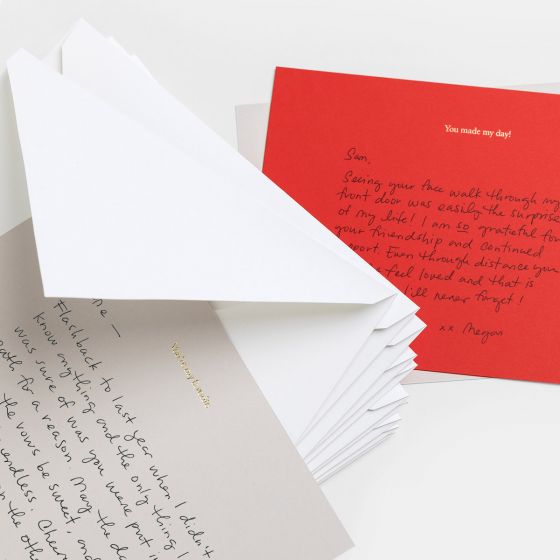 You made my day!
Sam,
Seeing your face walk through my
front door was easily the surprise
of my life! I am so grateful for
your friendship and continued
Even through distance you
feel loved and that is
I'll never forget!
xx Megan
Flashback to last year when I didn't
know anything and the only thing I
was sure of was you were put in
for a reason. May the
the vows be sweet, and